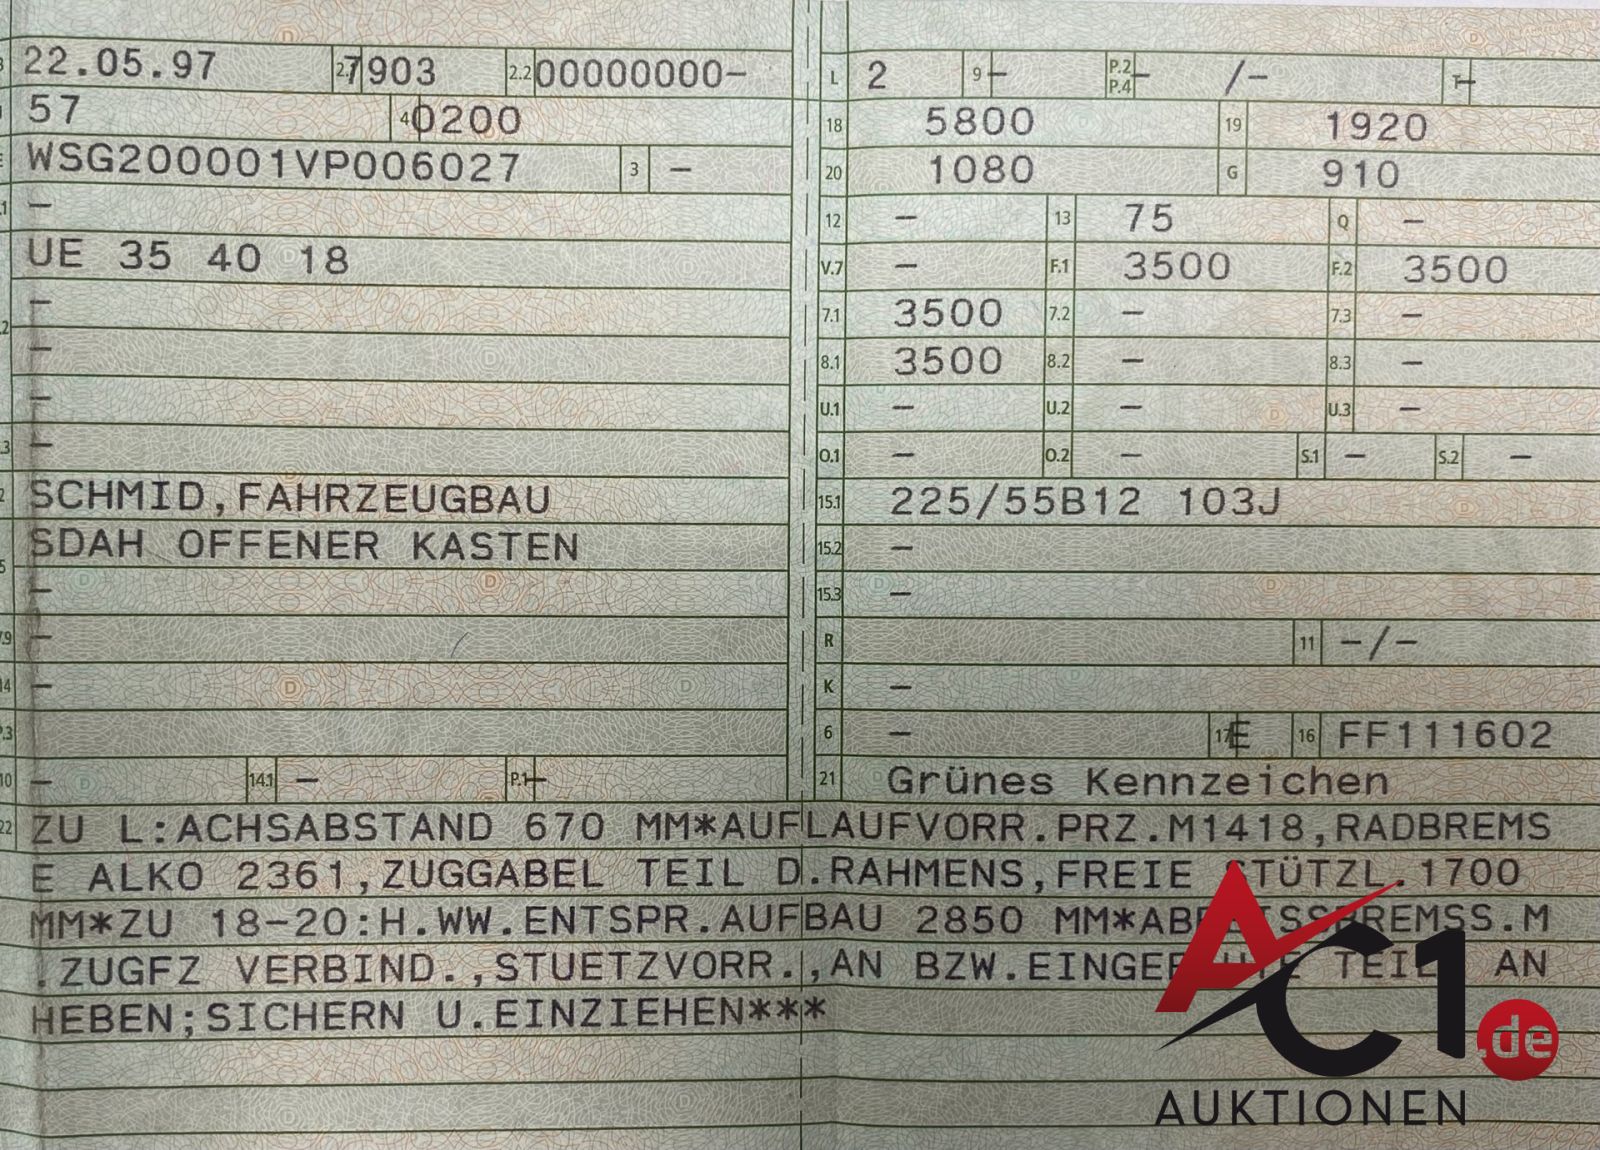 22.05.97 2.1 7903 2.2 00000000-
57 4 0200
WSG200001VP006027 3 -
.1 -
UE 35 40 18
-
.2 -
-
.3 -
2 SCHMID,FAHRZEUGBAU
SDAH OFFENER KASTEN
5 -
.9 -
14 -
P.3
10 - 14.1 - P.1 -
L 2 9 - P.2 P.4 - /- T -
18 5800 19 1920
20 1080 G 910
12 - 13 75 Q -
V.7 - F.1 3500 F.2 3500
7.1 3500 7.2 - 7.3 -
8.1 3500 8.2 - 8.3 -
U.1 - U.2 - U.3 -
O.1 - O.2 - S.1 - S.2 -
15.1 225/55B12 103J
15.2 -
15.3 -
R 11 -/-
K -
6 - 17 E 16 FF111602
21 Grünes Kennzeichen
22 ZU L:ACHSABSTAND 670 MM*AUFLAUFVORR.PRZ.M1418,RADBREMS
E ALKO 2361,ZUGGABEL TEIL D.RAHMENS,FREIE STÜTZL.1700
MM*ZU 18-20:H.WW.ENTSPR.AUFBAU 2850 MM*ABREISSBREMSS.M
.ZUGFZ VERBIND.,STUETZVORR.,AN BZW.EINGEBAUTE TEILE AN
HEBEN;SICHERN U.EINZIEHEN***
AC1.de
AUKTIONEN